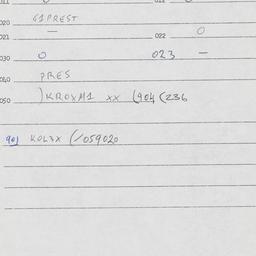 020 61PREST
021 — 022 0
030 0 023 —
040 PRES
050 )KROXM1 xx (904(236
901 KOL3X (/059020